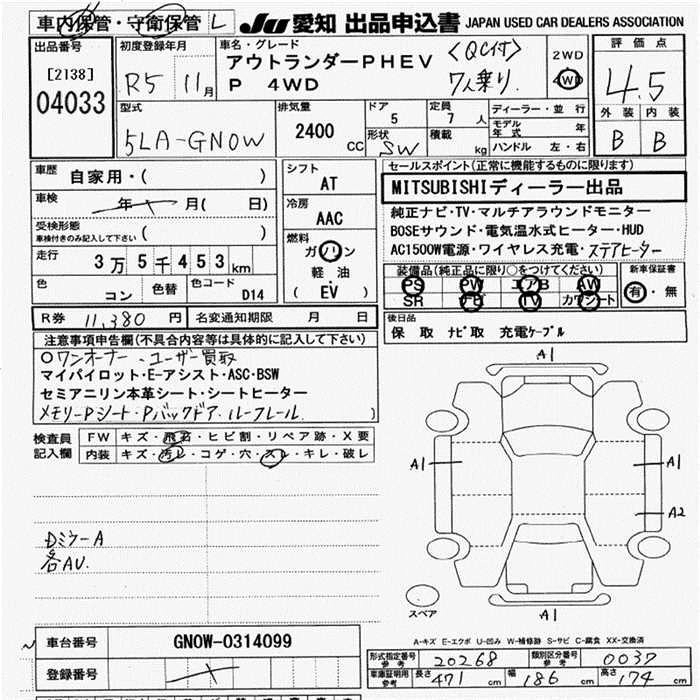 車内保管・守衛保管 L
JU 愛知 出品申込書 JAPAN USED CAR DEALERS ASSOCIATION
出品番号
[2138]
04033
初度登録年月
R5 11月
車名・グレード
アウトランダーPHEV
P 4WD
<QC付>
7人乗り.
2WD
4WD
評価点
4.5
外装 内装
B B
型式
5LA-GN0W
排気量
2400
CC
ドア
5
定員
7 人
形状
SW
積載
kg
ディーラー・並行
モデル年式 年
ハンドル 左・右
車歴
自家用・( )
車検
年 月( 日)
受検形態
車検付きのみ記入して下さい ( )
走行
3万5千453km
色
コン
色替
色コード
D14
シフト
AT
冷房
AAC
燃料
ガソリン
軽油
( EV )
セールスポイント(正常に機能するものに限ります)
MITSUBISHIディーラー出品
純正ナビ・TV・マルチアラウンドモニター
BOSEサウンド・電気温水式ヒーター・HUD
AC1500W電源・ワイヤレス充電・ステアヒーター
装備品(純正品に限り○をつけてください)
PS PW エアB AW
SR ナビ TV カワシート
新車保証書
有・無
R券 11,380 円
名変通知期限 月 日
後日品
保 取 ナビ取 充電ケーブル
注意事項申告欄(不具合内容等は具体的に記入して下さい)
○ワンオーナー、ユーザー買取
マイパイロット・E-アシスト・ASC・BSW
セミアニリン本革シート・シートヒーター
メモリーPシート・Pバックドア.ルーフレール. )
検査員記入欄
FW キズ・飛石・ヒビ割・リペア跡・X要
内装 キズ・汚レ・コゲ・穴・スレ・キレ・破レ
Dミラー A
各AU.
A1
A1
A1
A2
A1
スペア
A-キズ E-エクボ U-凹み W-補修跡 S-サビ C-腐食 XX-交換済
車台番号 GN0W-0314099
登録番号
形式指定番号 参考 20268
類別区分番号 参考 0037
車庫証明用 参考 長さ 471 cm 幅 186 cm 高さ 174 cm